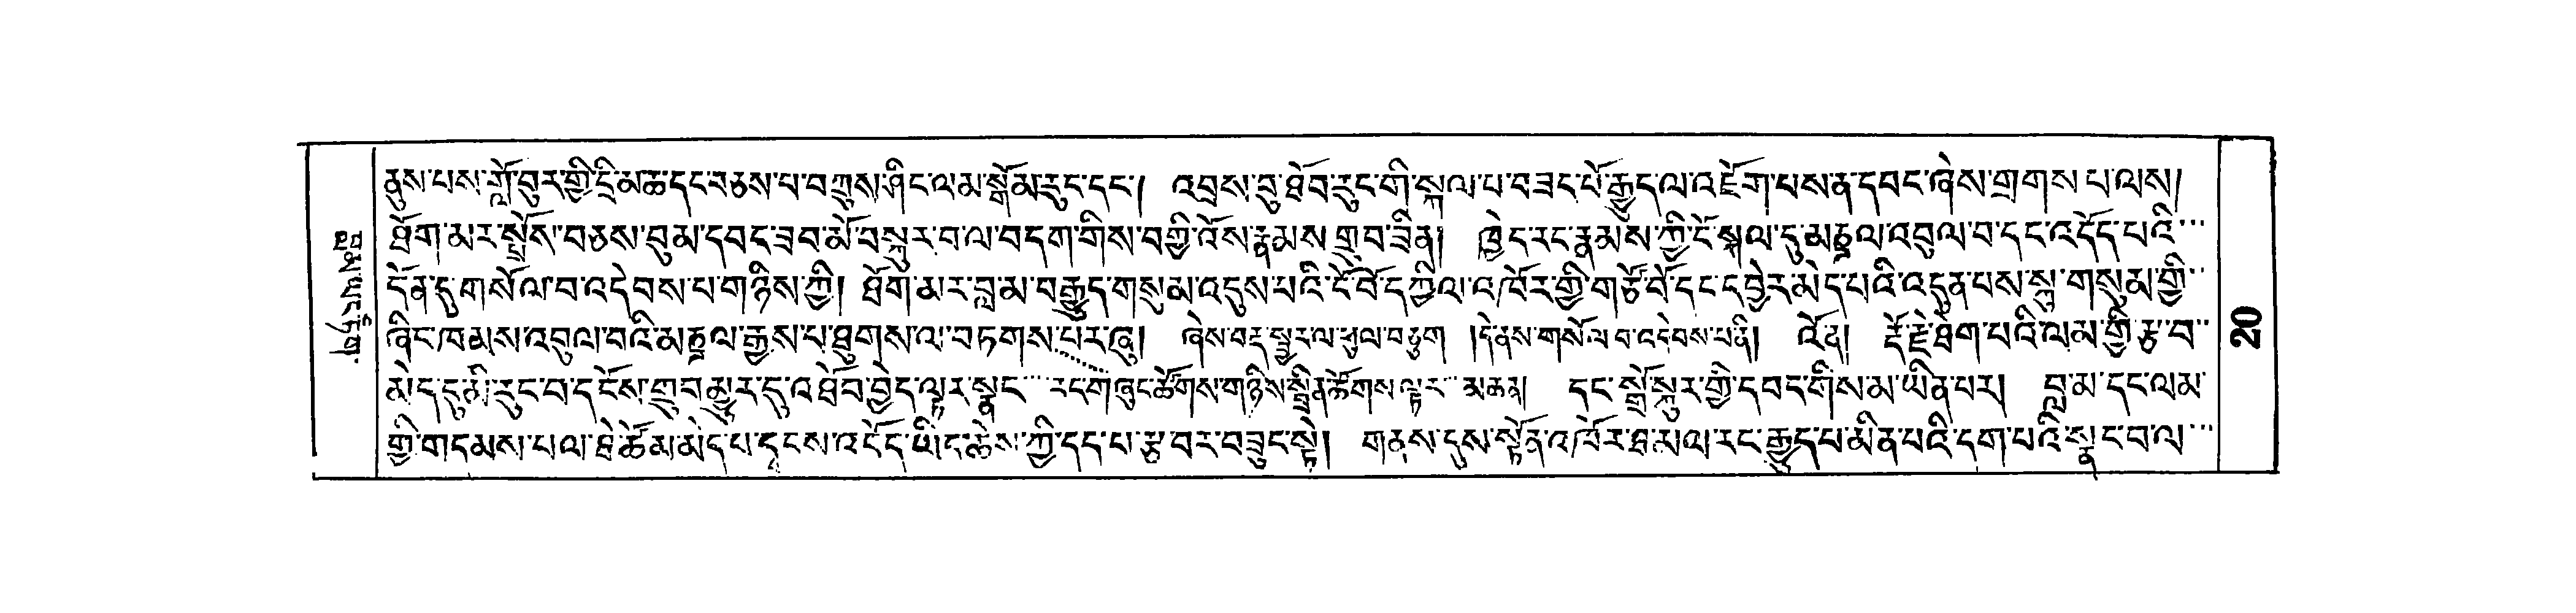 ནུས་པས་གློ་བུར་གྱི་དྲི་མཆ་དང་བཅས་པ་བཀྲུས་ཤིང་ལ་མ་སྒོམ་རུང་དང་། འབྲས་བུ་ཐོབ་རུང་གི་སྐལ་པ་བཟང་པོ་རྒྱུད་ལ་འཇོག་པས་ན་དབང་ཞེས་གྲགས་པ་ལས།
ཐོག་མར་སྤྲོས་བཅས་བུམ་དབང་ཟབ་མོ་བསྐུར་བ་ལ་བདག་གིས་བགྱི་འོས་རྣམས་གྲུབ་ཟིན། ཁྱེད་རང་རྣམས་ཀྱི་ངོ་སྐལ་དུ་མཎྜལ་འབུལ་བ་དང་འདོད་པའི་
དོན་དུ་གསོལ་བ་འདེབས་པ་གཉིས་ཀྱི། ཐོག་མར་བླམ་བརྒྱུད་གསུམ་འདུས་པའི་ངོ་བོ་དཀྱིལ་འཁོར་གྱི་གཙོ་བོ་དང་དབྱེར་མེད་པའི་འདུན་པས་སྐུ་གསུམ་གྱི་
ཞིང་ཁམས་འབུལ་བའི་མཎྜལ་རྒྱས་པ་ཐུགས་ལ་བཏགས་པར་ཞུ། ཞེས་བརྡ་སྦྱར་ལ་ཕུལ་བཅུག །དེནས་གསོལ་བ་འདེབས་པནི། འོན། རྡོ་རྗེ་ཐེག་པའི་ལམ་གྱི་རྩ་བ་
མེད་དུམི་རུང་བ་དངོས་གྲུབ་མྱུར་དུ་འཐོབ་བྱེད་ལྟར་སྣང་ རང་གཞུང་ཚོགས་གཉིས་སྨིན་རྟོགས་ལྟར་ མཆན། དང་སྒྲོ་སྐུར་གྱི་དབང་གིས་མ་ཡིན་པར། བླ་མ་དང་ལམ་
གྱི་གདམས་པ་ལ་ཐེ་ཚོམ་མེད་པ་དྭངས་འདོད་ཡིད་ཆེས་ཀྱི་དད་པ་རྩ་བར་བཟུང་སྟེ། གནས་དུས་སྟོན་འཁོར་ཐ་མལ་རང་རྒྱུད་པ་མིན་པའི་དག་པའི་སྣང་བ་ལ་